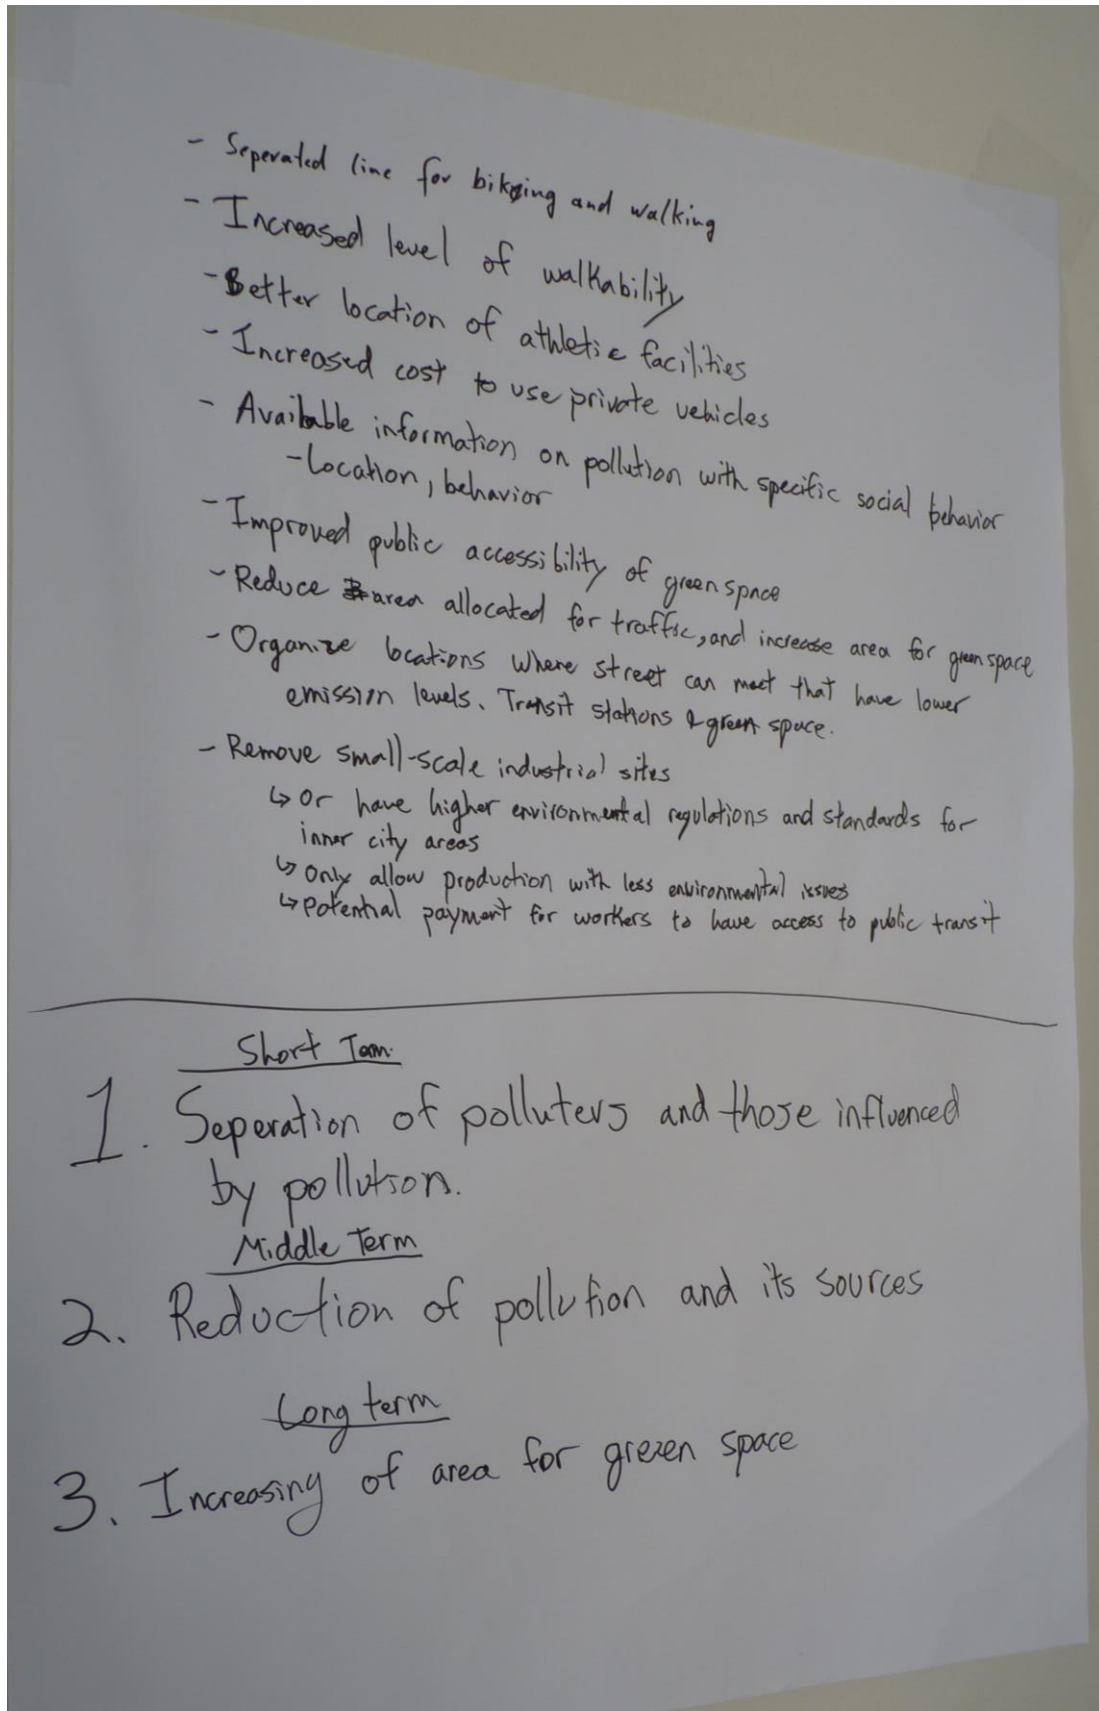 - Seperated line for biking and walking
- Increased level of walkability
- Better location of athletic facilities
- Increased cost to use private vehicles
- Available information on pollution with specific social behavior
- Location, behavior
- Improved public accessibility of green space
- Reduce area allocated for traffic, and increase area for green space
- Organize locations where street can meet that have lower
emission levels. Transit stations & green space.
- Remove small-scale industrial sites
↳ Or have higher environmental regulations and standards for
inner city areas
↳ Only allow production with less environmental issues
↳ potential payment for workers to have access to public transit
Short Term
1. Seperation of polluters and those influenced
by pollution.
Middle Term
2. Reduction of pollution and its sources
Long term
3. Increasing of area for green space